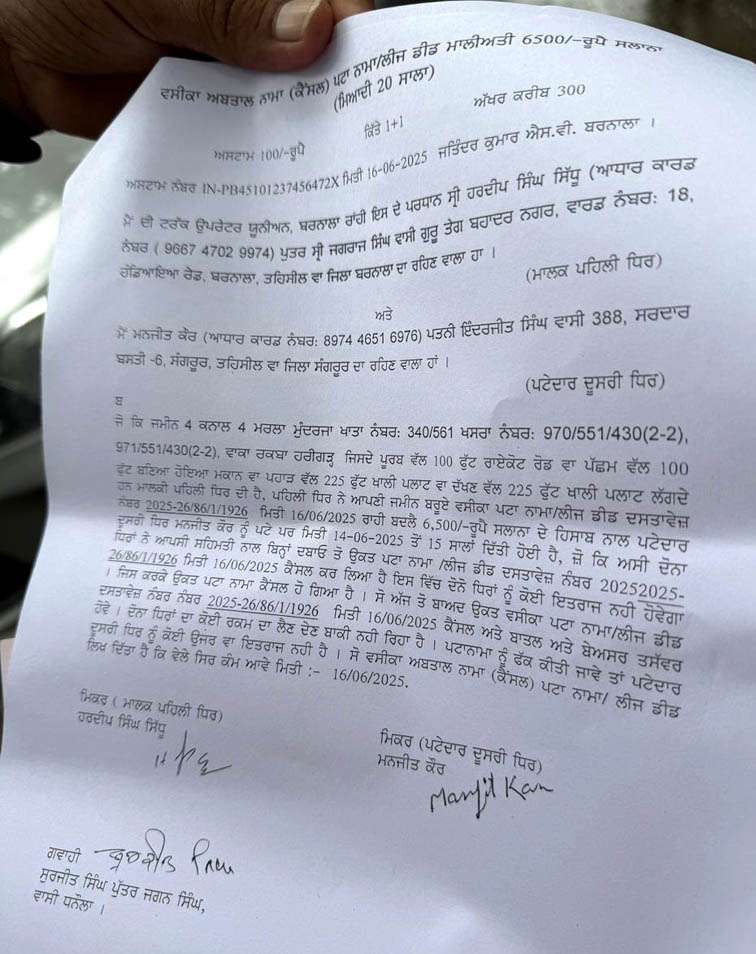 ਵਸੀਕਾ ਅਬਤਾਲ ਨਾਮਾ (ਕੈਂਸਲ) ਪਟਾ ਨਾਮਾ/ਲੀਜ ਡੀਡ ਮਾਲੀਅਤੀ 6500/-ਰੂਪੈ ਸਲਾਨਾ
(ਮਿਆਦੀ 20 ਸਾਲਾ)
ਅਸਟਾਮ 100/-ਰੂਪੈ ਕਿੱਤੇ 1+1 ਅੱਖਰ ਕਰੀਬ 300
ਅਸਟਾਮ ਨੰਬਰ IN-PB45101237456472X ਮਿਤੀ 16-06-2025 ਜਤਿੰਦਰ ਕੁਮਾਰ ਐਸ.ਵੀ. ਬਰਨਾਲਾ ।
ਮੈਂ ਦੀ ਟਰੱਕ ਉਪਰੇਟਰ ਯੂਨੀਅਨ, ਬਰਨਾਲਾ ਰਾਂਹੀ ਇਸ ਦੇ ਪਰਧਾਨ ਸ੍ਰੀ ਹਰਦੀਪ ਸਿੰਘ ਸਿੱਧੂ (ਆਧਾਰ ਕਾਰਡ
ਨੰਬਰ ( 9667 4702 9974) ਪੁਤਰ ਸ੍ਰੀ ਜਗਰਾਜ ਸਿੰਘ ਵਾਸੀ ਗੁਰੂ ਤੇਗ ਬਹਾਦਰ ਨਗਰ, ਵਾਰਡ ਨੰਬਰ: 18,
ਹੰਡਿਆਇਆ ਰੋਡ, ਬਰਨਾਲਾ, ਤਹਿਸੀਲ ਵਾ ਜਿਲਾ ਬਰਨਾਲਾ ਦਾ ਰਹਿਣ ਵਾਲਾ ਹਾ ।
(ਮਾਲਕ ਪਹਿਲੀ ਧਿਰ)
ਅਤੇ
ਮੈਂ ਮਨਜੀਤ ਕੌਰ (ਆਧਾਰ ਕਾਰਡ ਨੰਬਰ: 8974 4651 6976) ਪਤਨੀ ਇੰਦਰਜੀਤ ਸਿੰਘ ਵਾਸੀ 388, ਸਰਦਾਰ
ਬਸਤੀ -6, ਸੰਗਰੂਰ, ਤਹਿਸੀਲ ਵਾ ਜਿਲਾ ਸੰਗਰੂਰ ਦਾ ਰਹਿਣ ਵਾਲਾ ਹਾਂ ।
(ਪਟੇਦਾਰ ਦੂਸਰੀ ਧਿਰ)
ਬ
ਜੋ ਕਿ ਜਮੀਨ 4 ਕਨਾਲ 4 ਮਰਲਾ ਮੁੰਦਰਜਾ ਖਾਤਾ ਨੰਬਰ: 340/561 ਖਸਰਾ ਨੰਬਰ: 970/551/430(2-2),
971/551/430(2-2), ਵਾਕਾ ਰਕਬਾ ਹਰੀਗੜ੍ਹ ਜਿਸਦੇ ਪੂਰਬ ਵੱਲ 100 ਫੁੱਟ ਰਾਏਕੋਟ ਰੋਡ ਵਾ ਪੱਛਮ ਵੱਲ 100
ਫੁੱਟ ਬਣਿਆ ਹੋਇਆ ਮਕਾਨ ਵਾ ਪਹਾੜ ਵੱਲ 225 ਫੁੱਟ ਖਾਲੀ ਪਲਾਟ ਵਾ ਦੱਖਣ ਵੱਲ 225 ਫੁੱਟ ਖਾਲੀ ਪਲਾਟ ਲੱਗਦੇ
ਹਨ ਮਾਲਕੀ ਪਹਿਲੀ ਧਿਰ ਦੀ ਹੈ, ਪਹਿਲੀ ਧਿਰ ਨੇ ਆਪਣੀ ਜਮੀਨ ਬਰੂਏ ਵਸੀਕਾ ਪਟਾ ਨਾਮਾ/ਲੀਜ ਡੀਡ ਦਸਤਾਵੇਜ਼
ਨੰਬਰ 2025-26/86/1/1926 ਮਿਤੀ 16/06/2025 ਰਾਹੀ ਬਦਲੇ 6,500/-ਰੂਪੈ ਸਲਾਨਾ ਦੇ ਹਿਸਾਬ ਨਾਲ ਪਟੇਦਾਰ
ਦੂਸਰੀ ਧਿਰ ਮਨਜੀਤ ਕੌਰ ਨੂੰ ਪਟੇ ਪਰ ਮਿਤੀ 14-06-2025 ਤੋਂ 15 ਸਾਲਾਂ ਦਿੱਤੀ ਹੋਈ ਹੈ, ਜ਼ੋ ਕਿ ਅਸੀ ਦੋਨਾ
ਧਿਰਾਂ ਨੇ ਆਪਸੀ ਸਹਿਮਤੀ ਨਾਲ ਬਿਨ੍ਹਾਂ ਦਬਾਓ ਤੋ ਉਕਤ ਪਟਾ ਨਾਮਾ /ਲੀਜ ਡੀਡ ਦਸਤਾਵੇਜ਼ ਨੰਬਰ 20252025-
26/86/1/1926 ਮਿਤੀ 16/06/2025 ਕੈਂਸਲ ਕਰ ਲਿਆ ਹੈ ਇਸ ਵਿੱਚ ਦੋਨੋ ਧਿਰਾਂ ਨੂੰ ਕੋਈ ਇਤਰਾਜ ਨਹੀ ਹੋਵੇਗਾ
। ਜਿਸ ਕਰਕੇ ਉਕਤ ਪਟਾ ਨਾਮਾ ਕੈਂਸਲ ਹੋ ਗਿਆ ਹੈ । ਸੋ ਅੱਜ ਤੋ ਬਾਅਦ ਉਕਤ ਵਸੀਕਾ ਪਟਾ ਨਾਮਾ/ਲੀਜ ਡੀਡ
ਦਸਤਾਵੇਜ਼ ਨੰਬਰ ਨੰਬਰ 2025-26/86/1/1926 ਮਿਤੀ 16/06/2025 ਕੈਂਸਲ ਅਤੇ ਬਾਤਲ ਅਤੇ ਬੇਅਸਰ ਤਸੱਵਰ
ਹੋਵੇ । ਦੋਨਾ ਧਿਰਾਂ ਦਾ ਕੋਈ ਰਕਮ ਦਾ ਲੈਣ ਦੇਣ ਬਾਕੀ ਨਹੀ ਰਿਹਾ ਹੈ । ਪਟਾਨਾਮਾ ਨੂੰ ਫੱਕ ਕੀਤੀ ਜਾਵੇ ਤਾਂ ਪਟੇਦਾਰ
ਦੂਸਰੀ ਧਿਰ ਨੂੰ ਕੋਈ ਉਜਰ ਵਾ ਇਤਰਾਜ ਨਹੀ ਹੈ । ਸੋ ਵਸੀਕਾ ਅਬਤਾਲ ਨਾਮਾ (ਕੈਂਸਲ) ਪਟਾ ਨਾਮਾ/ ਲੀਜ ਡੀਡ
ਲਿਖ ਦਿੱਤਾ ਹੈ ਕਿ ਵੇਲੇ ਸਿਰ ਕੰਮ ਆਵੇ ਮਿਤੀ :- 16/06/2025.
ਮਿਕਰ ( ਮਾਲਕ ਪਹਿਲੀ ਧਿਰ)
ਹਰਦੀਪ ਸਿੰਘ ਸਿੱਧੂ
ਮਿਕਰ (ਪਟੇਦਾਰ ਦੂਸਰੀ ਧਿਰ)
ਮਨਜੀਤ ਕੌਰ
Manjit Kaur
ਗਵਾਹੀ
ਸੁਰਜੀਤ ਸਿੰਘ ਪੁੱਤਰ ਜਗਨ ਸਿੰਘ,
ਵਾਸੀ ਧਨੌਲਾ ।